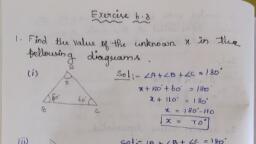 Exercise 6.3
1. Find the value of the unknown x in the
following diagrams.
(i)
A
x
50°
60°
B
C
Sol:- ∠A+∠B+∠C = 180°
x+50°+60° = 180°
x+110° = 180°
x = 180°-110
x = 70°
(ii)